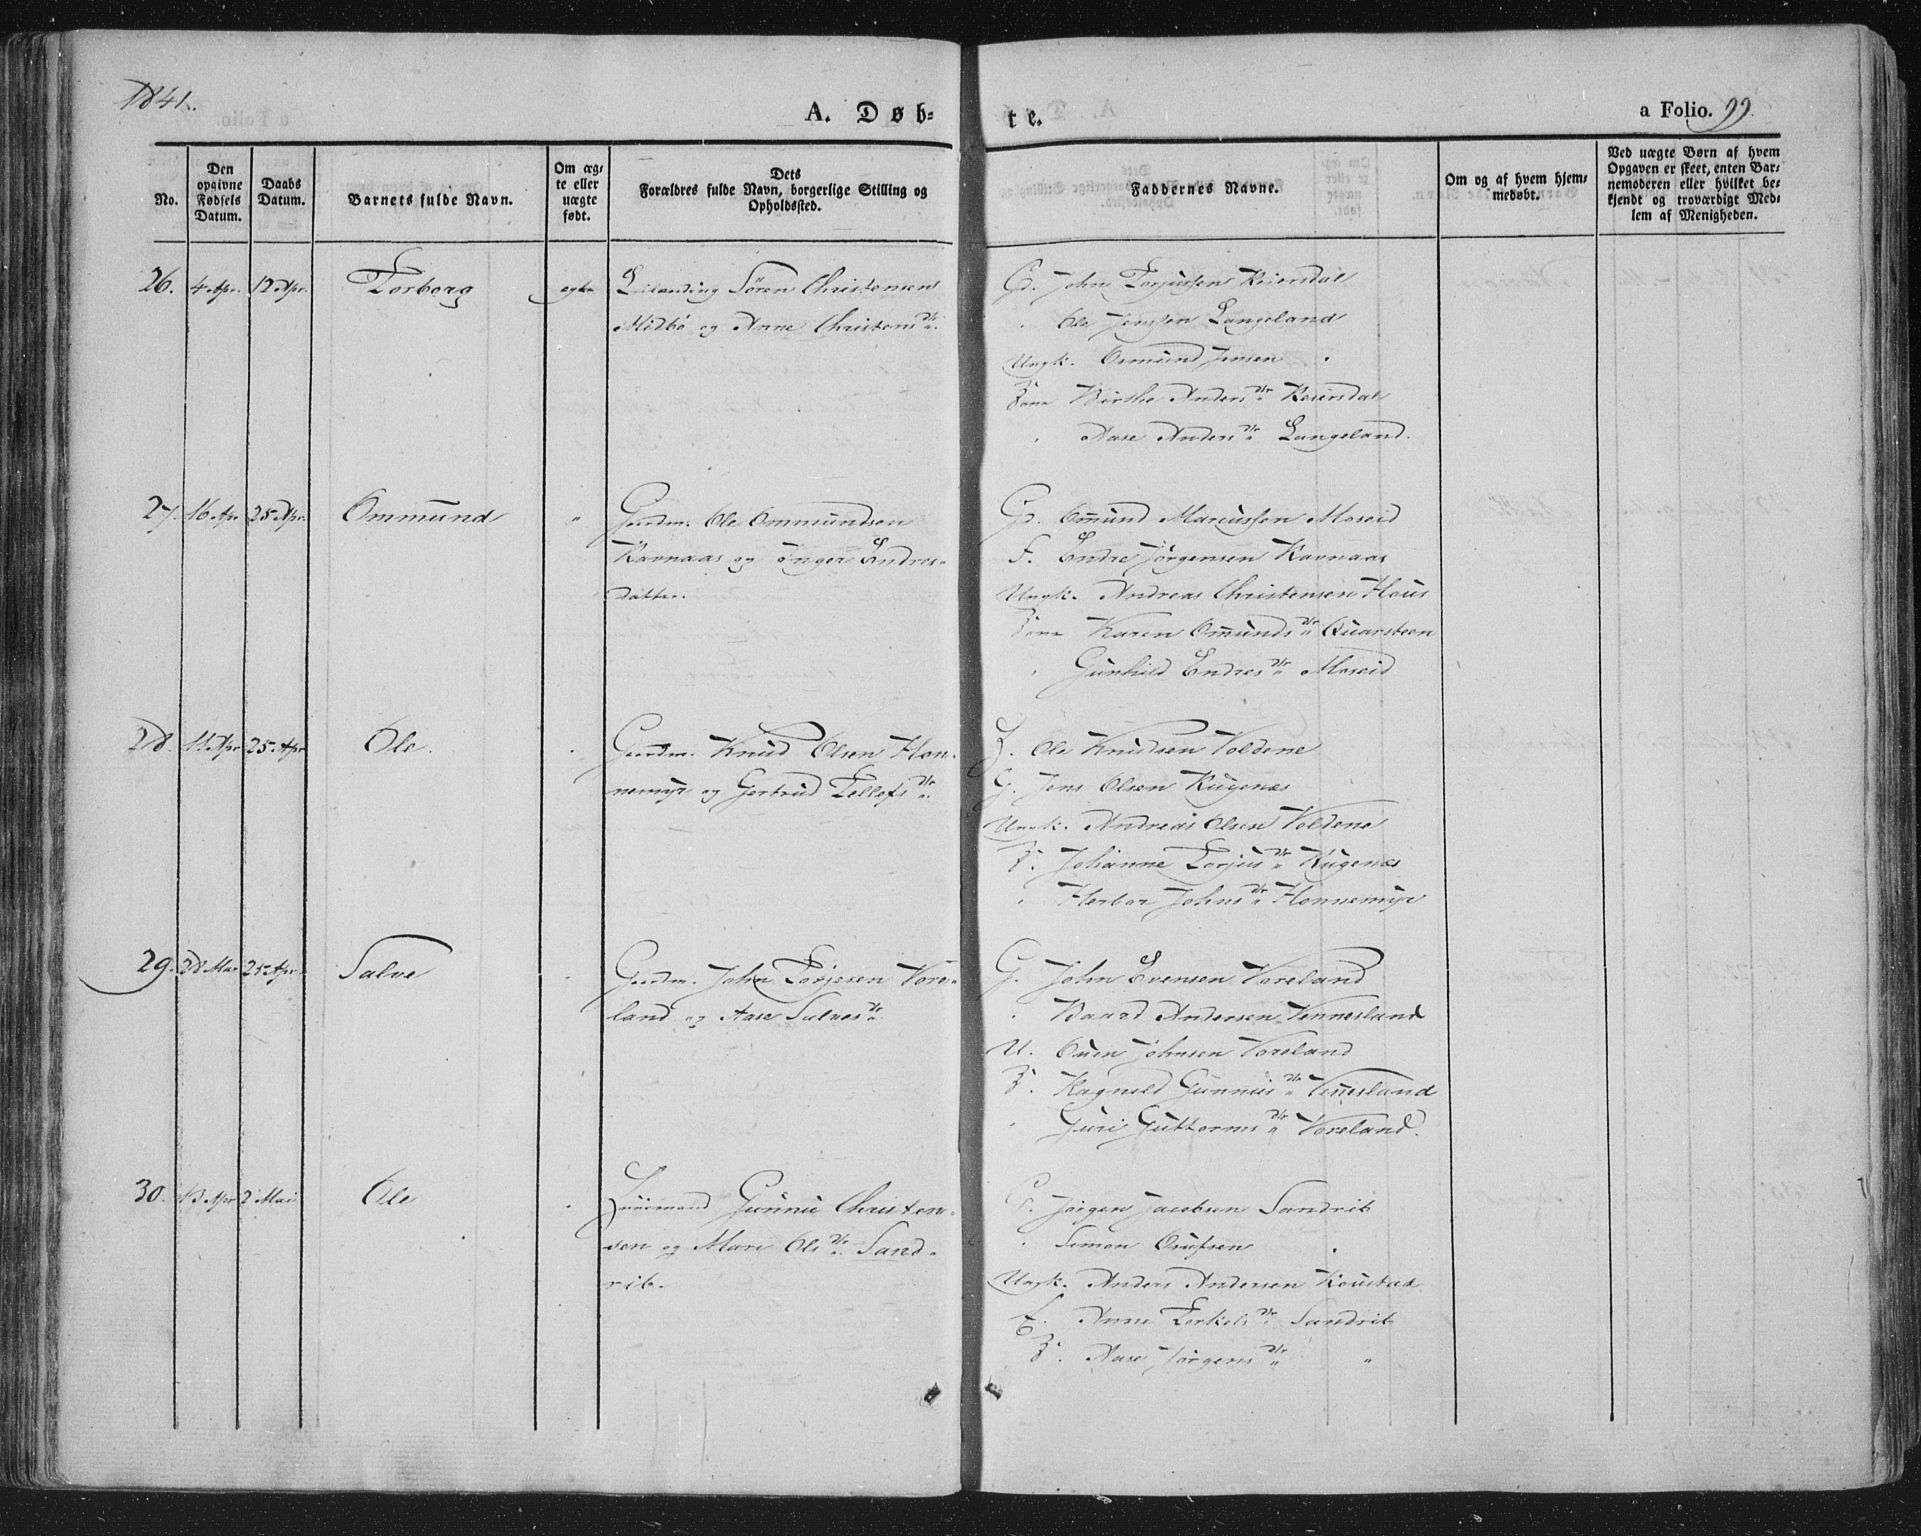 1841.
A. Døb-
te.
a Folio. 99.
No.
Den opgivne Fødsels Datum.
Daabs Datum.
Barnets fulde Navn.
Om æg-te eller uægte født.
Dets Forældres fulde Navn, borgerlige Stilling og Opholdssted.
Faddernes Navne.
Om og af hvem hjem-medøbt.
Ved uægte Børn af hvem Opgaven er skeet, enten Bar-nemoderen eller hvilket be-kjendt og troværdigt Med-lem af Menigheden.
26. 4 Apr. 12 Apr. Torborg ægte Leilænding Sören Christensen
Midbö og Anne Christens Dtr.
Gd. John Torjussen Reiersdal
Ole Jensen Langeland
Ungk. Omund Jensen "
Kone Birthe Anders Dtr Reiersdal
" Aase Anders Dtr Langeland.
27. 16 Apr 25 Apr. Ommund " Gaardm. Ole Ommundsen
Ravnaas og Inger Endres-
datter.
Gd. Omund Marcussen Moseid
F. Endre Jörgensen Ravnaas
Ungk. Andreas Christensen Haus
Kone Karen Omunds Dtr Quarsteen
" Gunhild Endres Dtr Moseid
28. 11 Apr 25 Apr Ole. " Gaardm. Knud Olsen Hon-
nemyr og Gertrud Tellefs Dtr.
F. Ole Knudsen Voldene
G. Jens Olsen Rugenæs
Ungk. Andreas Olsen Voldene
K. Johanne Torjus Dtr Rugenæs
" Herbor Johns Dtr Honnemyr
29. 28 Mar 25 Apr. Salve " Gaardm. John Torjesen Vore-
land og Aase Salves Dtr
G. John Evensen Voreland
" Baard Andersen Vennesland
U. Even Johnsen Voreland
K. Ragnild Gunnus Dtr Venesland
" Guri Guttorms Dtr Voreland.
30. 13 Apr 2 Mai Ole " Huusmand Gunnu Christen-
sen og Mari Ols Dtr Sand-
rib.
F. Jörgen Jacobsen Sandrib
" Simon Osufsen "
Ungk. Anders Andersen Roustad
E. Anne Terkels Dtr Sandrib
K. Aase Jörgens Dtr "